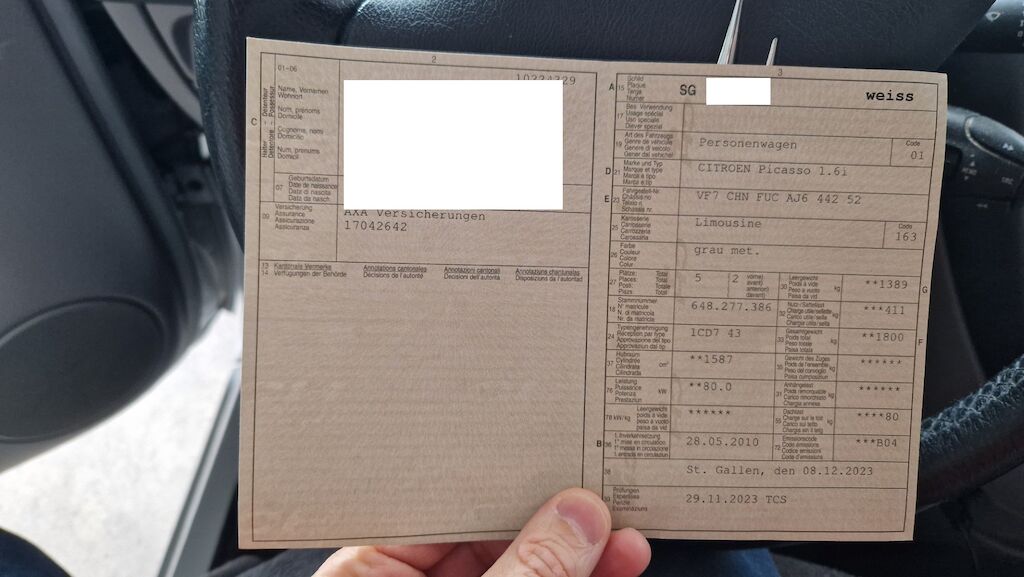 2
01-06
10224329
C
Halter - Détenteur
Detentore - Possessur
Name, Vornamen
Wohnort
Nom, prénoms
Domicile
Cognome, nomi
Domicilio
Num, prenums
Domicil
07
Geburtsdatum
Date de naissance
Data di nascita
Data da nasch.
09
Versicherung
Assurance
Assicurazione
Assicuranza
AXA Versicherungen
17042642
13
14
Kantonale Vermerke
Verfügungen der Behörde
Annotations cantonales
Décisions de l'autorité
Annotazioni cantonali
Decisioni dell'autorità
Annotaziuns chantunalas
Disposiziuns da l'autoritad
3
A
15
Schild
Plaque
Targa
Numer
SG
weiss
17
Bes. Verwendung
Usage spécial
Uso speciale
Diever spezial
19
Art des Fahrzeugs
Genre de véhicule
Genere di veicolo
Gener dal vehichel
Personenwagen
Code
01
D
21
Marke und Typ
Marque et type
Marca e tipo
Marca e tip
CITROEN Picasso 1.6i
E
23
Fahrgestell-Nr.
Châssis no
Telaio n.
Schassis nr.
VF7 CHN FUC AJ6 442 52
25
Karosserie
Carrosserie
Carrozzeria
Carossaria
Limousine
Code
163
26
Farbe
Couleur
Colore
Colur
grau met.
27
Plätze: Total
Places: Total
Posti: Totale
Plazs: Total
5
2
vorne)
avant)
anteriori)
davant)
30
Leergewicht
Poids à vide
Peso a vuoto
Paisa da vid
kg
**1389
G
18
Stammnummer
N° matricule
N. di matricola
Nr. da matricla
648.277.386
32
Nutz-/Sattellast
Charge utile/sellette
Carico utile/sella
Chargia utila/sella
kg
***411
24
Typengenehmigung
Réception par type
Approvazione del tipo
Approvaziun dal tip
1CD7 43
33
Gesamtgewicht
Poids total
Peso totale
Paisa totala
kg
**1800
F
37
Hubraum
Cylindrée
Cilindrata
Cilindrada
cm³
**1587
35
Gewicht des Zuges
Poids de l'ensemble
Peso del convoglio
Paisa cumposiziun
kg
******
76
Leistung
Puissance
Potenza
Prestaziun
kW
**80.0
31
Anhängelast
Poids remorquable
Peso rimorchiato
Chargia annexa
kg
******
78 kW/kg
Leergewicht
poids à vide
peso a vuoto
paisa da vid
******
55
Dachlast
Charge sur le toit
Carico sul tetto
Chargia sin il tetg
kg
****80
B
36
1. Inverkehrsetzung
1re mise en circulation
1a messa in circolazione
1. entrada en circulaziun
28.05.2010
72
Emissionscode
Code émissions
Codice emissioni
Code d'emissiuns
***B04
38
St. Gallen, den 08.12.2023
39
Prüfungen
Expertises
Perizie
Examinaziuns
29.11.2023 TCS